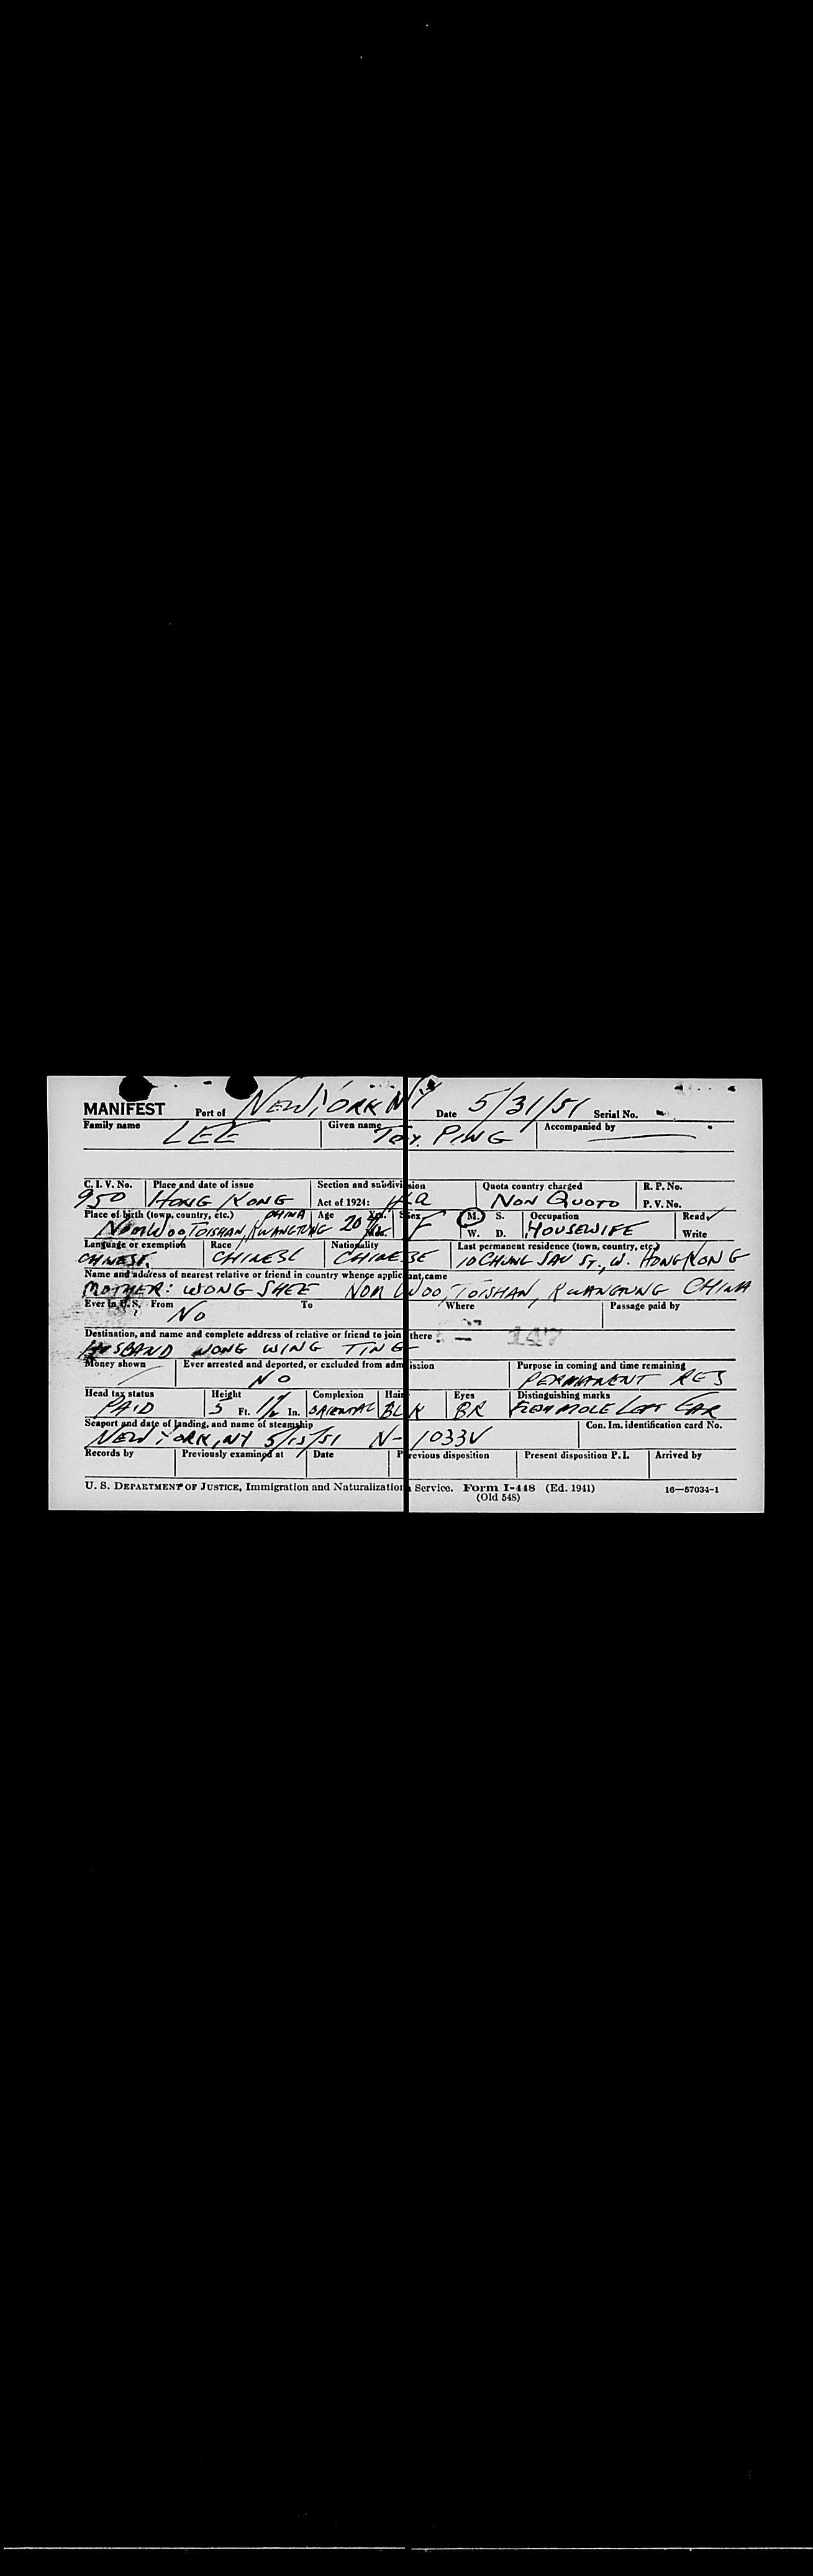 MANIFEST Port of NEW YORK NY Date 5/31/51 Serial No.
Family name LEE Given name TOY PING Accompanied by
C. I. V. No. Place and date of issue Section and subdivision Quota country charged R. P. No.
950 HONG KONG Act of 1924: 4a NON QUOTO P. V. No.
Place of birth (town, country, etc.) CHINA Age 20 Yrs. Mos. Sex F M. S. Occupation Read ✓
NOM WOO, TOISHAN, KWANGTUNG W. D. HOUSEWIFE Write
Language or exemption Race Nationality Last permanent residence (town, country, etc.)
CHINESE CHINESE CHINESE 10 CHUNG SAU ST., W. HONG KONG
Name and address of nearest relative or friend in country whence applicant came
MOTHER: WONG SHEE NOM WOO, TOISHAN, KWANGTUNG CHINA
Ever in U. S. From To Where Passage paid by
NO
Destination, and name and complete address of relative or friend to join there
HUSBAND WONG WING TING — 147
Money shown Ever arrested and deported, or excluded from admission Purpose in coming and time remaining
NO PERMANENT RES
Head tax status Height Complexion Hair Eyes Distinguishing marks
PAID 5 Ft. 1½ In. ORIENTAL BLK BR FLESH MOLE LEFT EAR
Seaport and date of landing, and name of steamship Con. Im. identification card No.
NEW YORK, NY 5/15/51 N-1033V
Records by Previously examined at Date Previous disposition Present disposition P. I. Arrived by
U. S. DEPARTMENT OF JUSTICE, Immigration and Naturalization Service. Form I-448 (Ed. 1941) 16—57034-1
(Old 548)